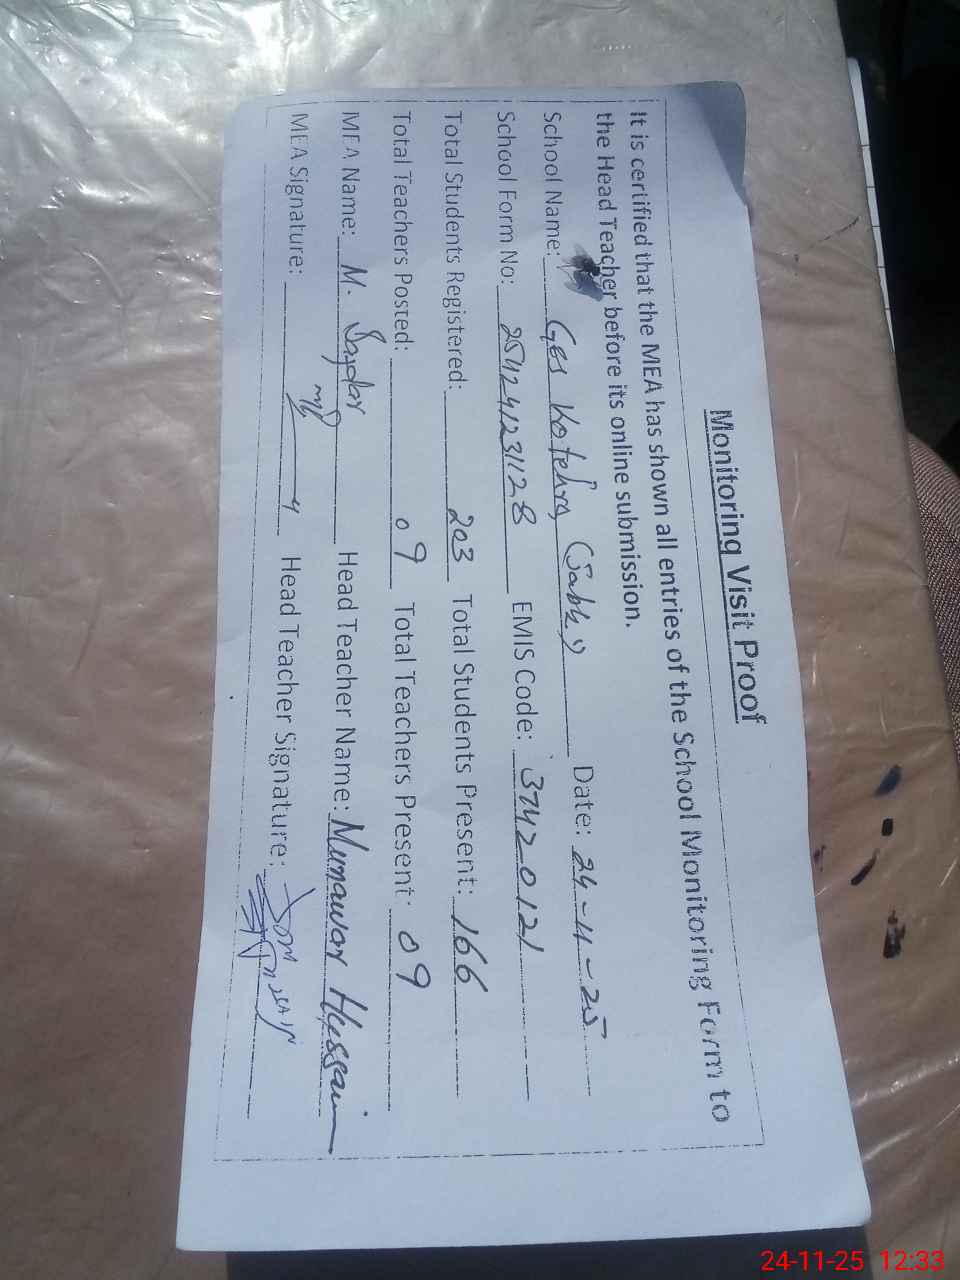 Monitoring Visit Proof
It is certified that the MEA has shown all entries of the School Monitoring Form to
the Head Teacher before its online submission.
School Name: Ges Kotehra Date: 24-11-25
School Form No: 254241231128 EMIS Code: 37420121
Total Students Registered: 203 Total Students Present: 166
Total Teachers Posted: 09 Total Teachers Present: 09
MEA Name: M. Head Teacher Name: Munawar Hussain
MEA Signature: Head Teacher Signature:
24-11-25 12:33